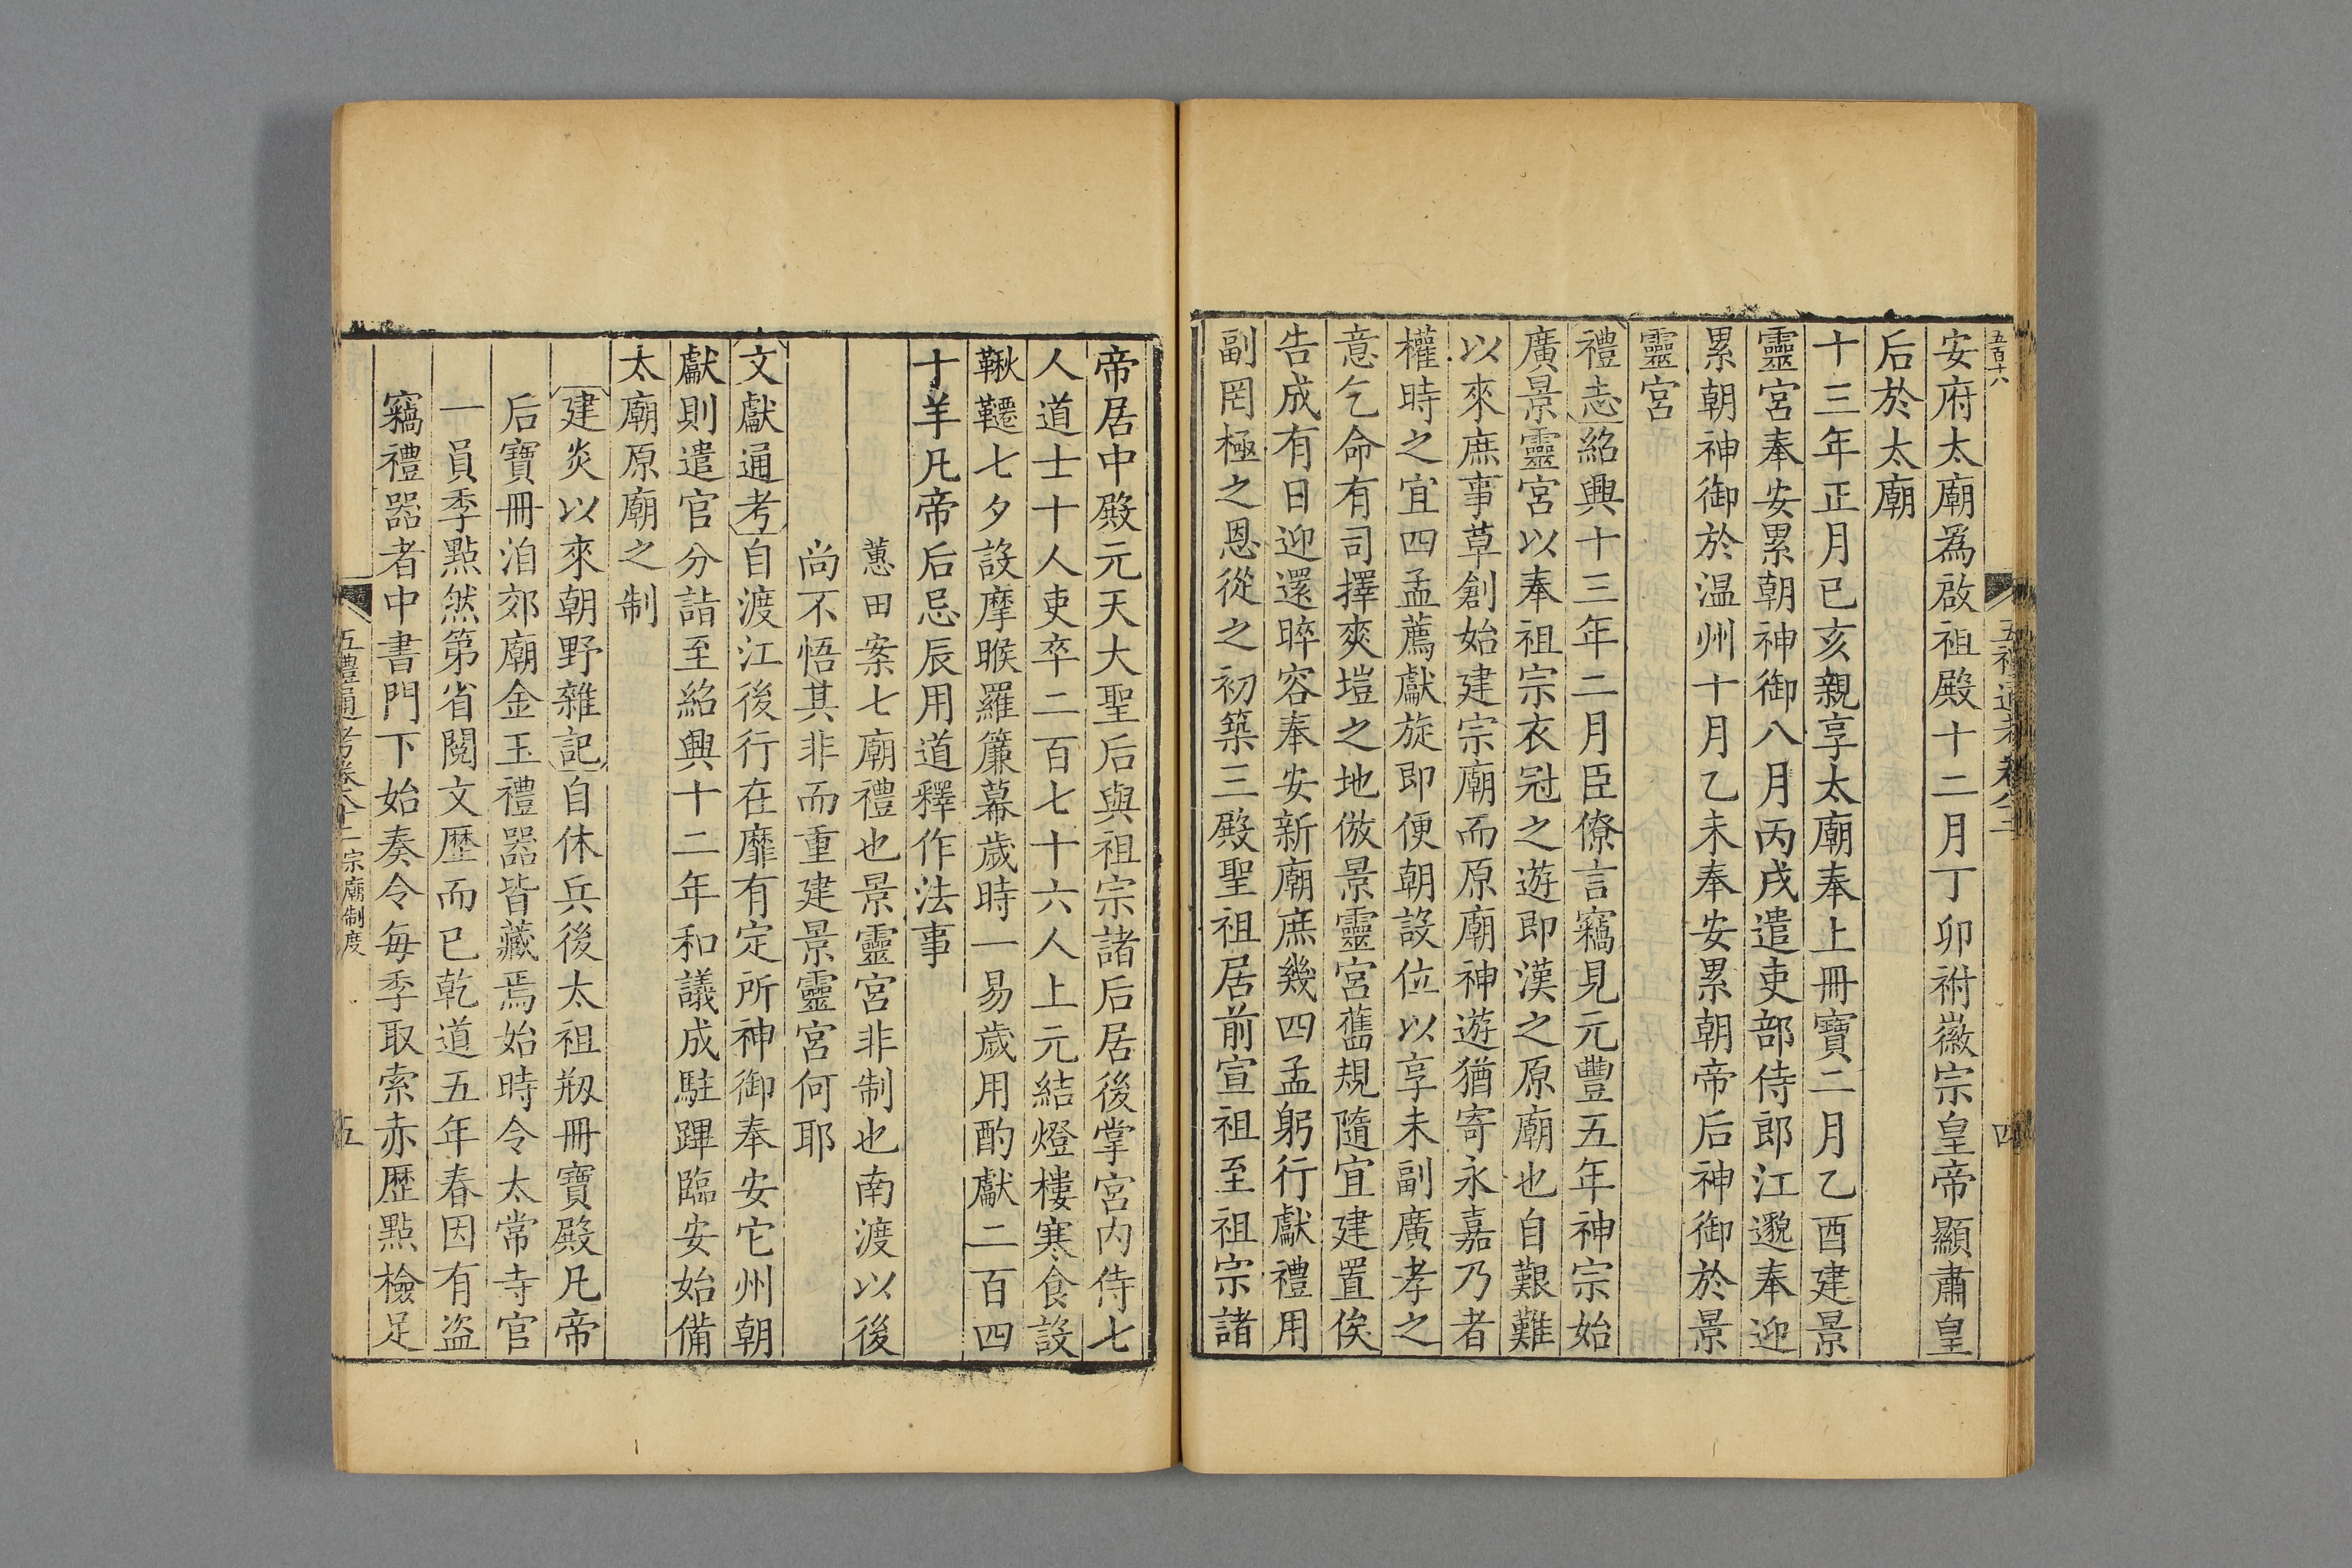 五百十六
安府太廟爲啟祖殿十二月丁卯祔徽宗皇帝顯肅皇
后於太廟
十三年正月已亥親享太廟奉上冊寶二月乙酉建景
靈宮奉安累朝神御八月丙戌遣吏部侍郎江邈奉迎
累朝神御於温州十月乙未奉安累朝帝后神御於景
靈宮
禮志紹興十三年二月臣僚言竊見元豐五年神宗始
廣景靈宮以奉祖宗衣冠之遊即漢之原廟也自艱難
以來庶事草創始建宗廟而原廟神遊猶寄永嘉乃者
權時之宜四孟薦獻旋即便朝設位以享未副廣孝之
意乞命有司擇爽塏之地倣景靈宮舊規隨宜建置俟
告成有日迎還晬容奉安新廟庶幾四孟躬行獻禮用
副罔極之恩從之初築三殿聖祖居前宣祖至祖宗諸
五禮通考卷八十二
四
帝居中殿元天大聖后與祖宗諸后居後掌宮内侍七
人道士十人吏卒二百七十六人上元結燈樓寒食設
鞦韆七夕設摩睺羅簾幕歲時一易歲用酌獻二百四
十羊凡帝后忌辰用道釋作法事
蕙田案七廟禮也景靈宮非制也南渡以後
尚不悟其非而重建景靈宮何耶
文獻通考自渡江後行在靡有定所神御奉安它州朝
獻則遣官分詣至紹興十二年和議成駐蹕臨安始備
太廟原廟之制
建炎以來朝野雜記自休兵後太祖剏冊寶殿凡帝
后寶冊洎郊廟金玉禮器皆藏焉始時令太常寺官
一員季點然第省閱文歷而已乾道五年春因有盜
竊禮器者中書門下始奏令每季取索赤歷點檢足
五禮通考卷八十二宗廟制度
五